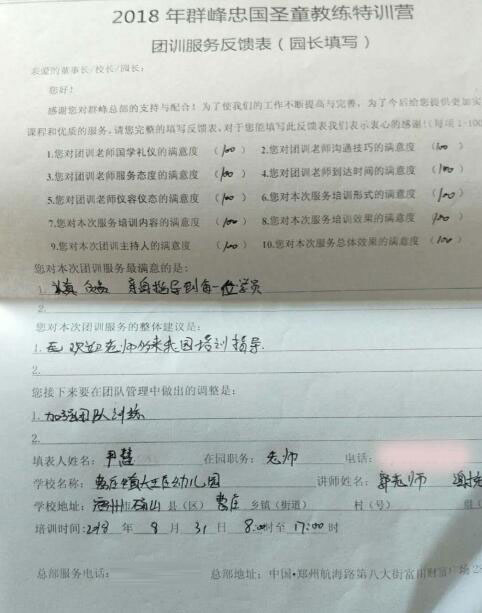 2018 年群峰忠国圣童教练特训营
团训服务反馈表（园长填写）
亲爱的董事长/校长/园长：
您好！
感谢您对群峰总部的支持与配合！为了使我们的工作不断提高与完善，为了今后给您提供更加实
课程和优质的服务，请您完整的填写反馈表，对于您能填写此反馈表我们表示衷心的感谢！（每项 1-100
1.您对团训老师国学礼仪的满意度 （100） 2.您对团训老师沟通技巧的满意度 （100）
3.您对团训老师服务态度的满意度 （100） 4.您对团训老师到达时间的满意度 （100）
5.您对团训老师仪容仪态的满意度 （100） 6.您对本次服务培训形式的满意度 （100）
7.您对本次服务培训内容的满意度 （100） 8.您对本次服务培训效果的满意度 （100）
9.您对本次团训主持人的满意度 （100） 10.您对本次服务总体效果的满意度（100）
您对本次团训服务最满意的是：
1. 认真 亲自指导到每一位学员
2.
您对本次团训服务的整体建议是：
1. 无 欢迎老师多来我园培训指导.
2.
您接下来要在团队管理中做出的调整是：
1. 加强团队训练
2.
填表人姓名：尹慧 在园职务：老师 电话：
学校名称： 幼儿园 讲师姓名：郭老师 谢
学校地址： 县（区） 乡镇（街道） 村（号） 组（
培训时间：2018 年 8 月 31 日 8:00时至 17:00 时
总部服务电话： 总部地址：中国·郑州航海路第八大街富田财富广场 2